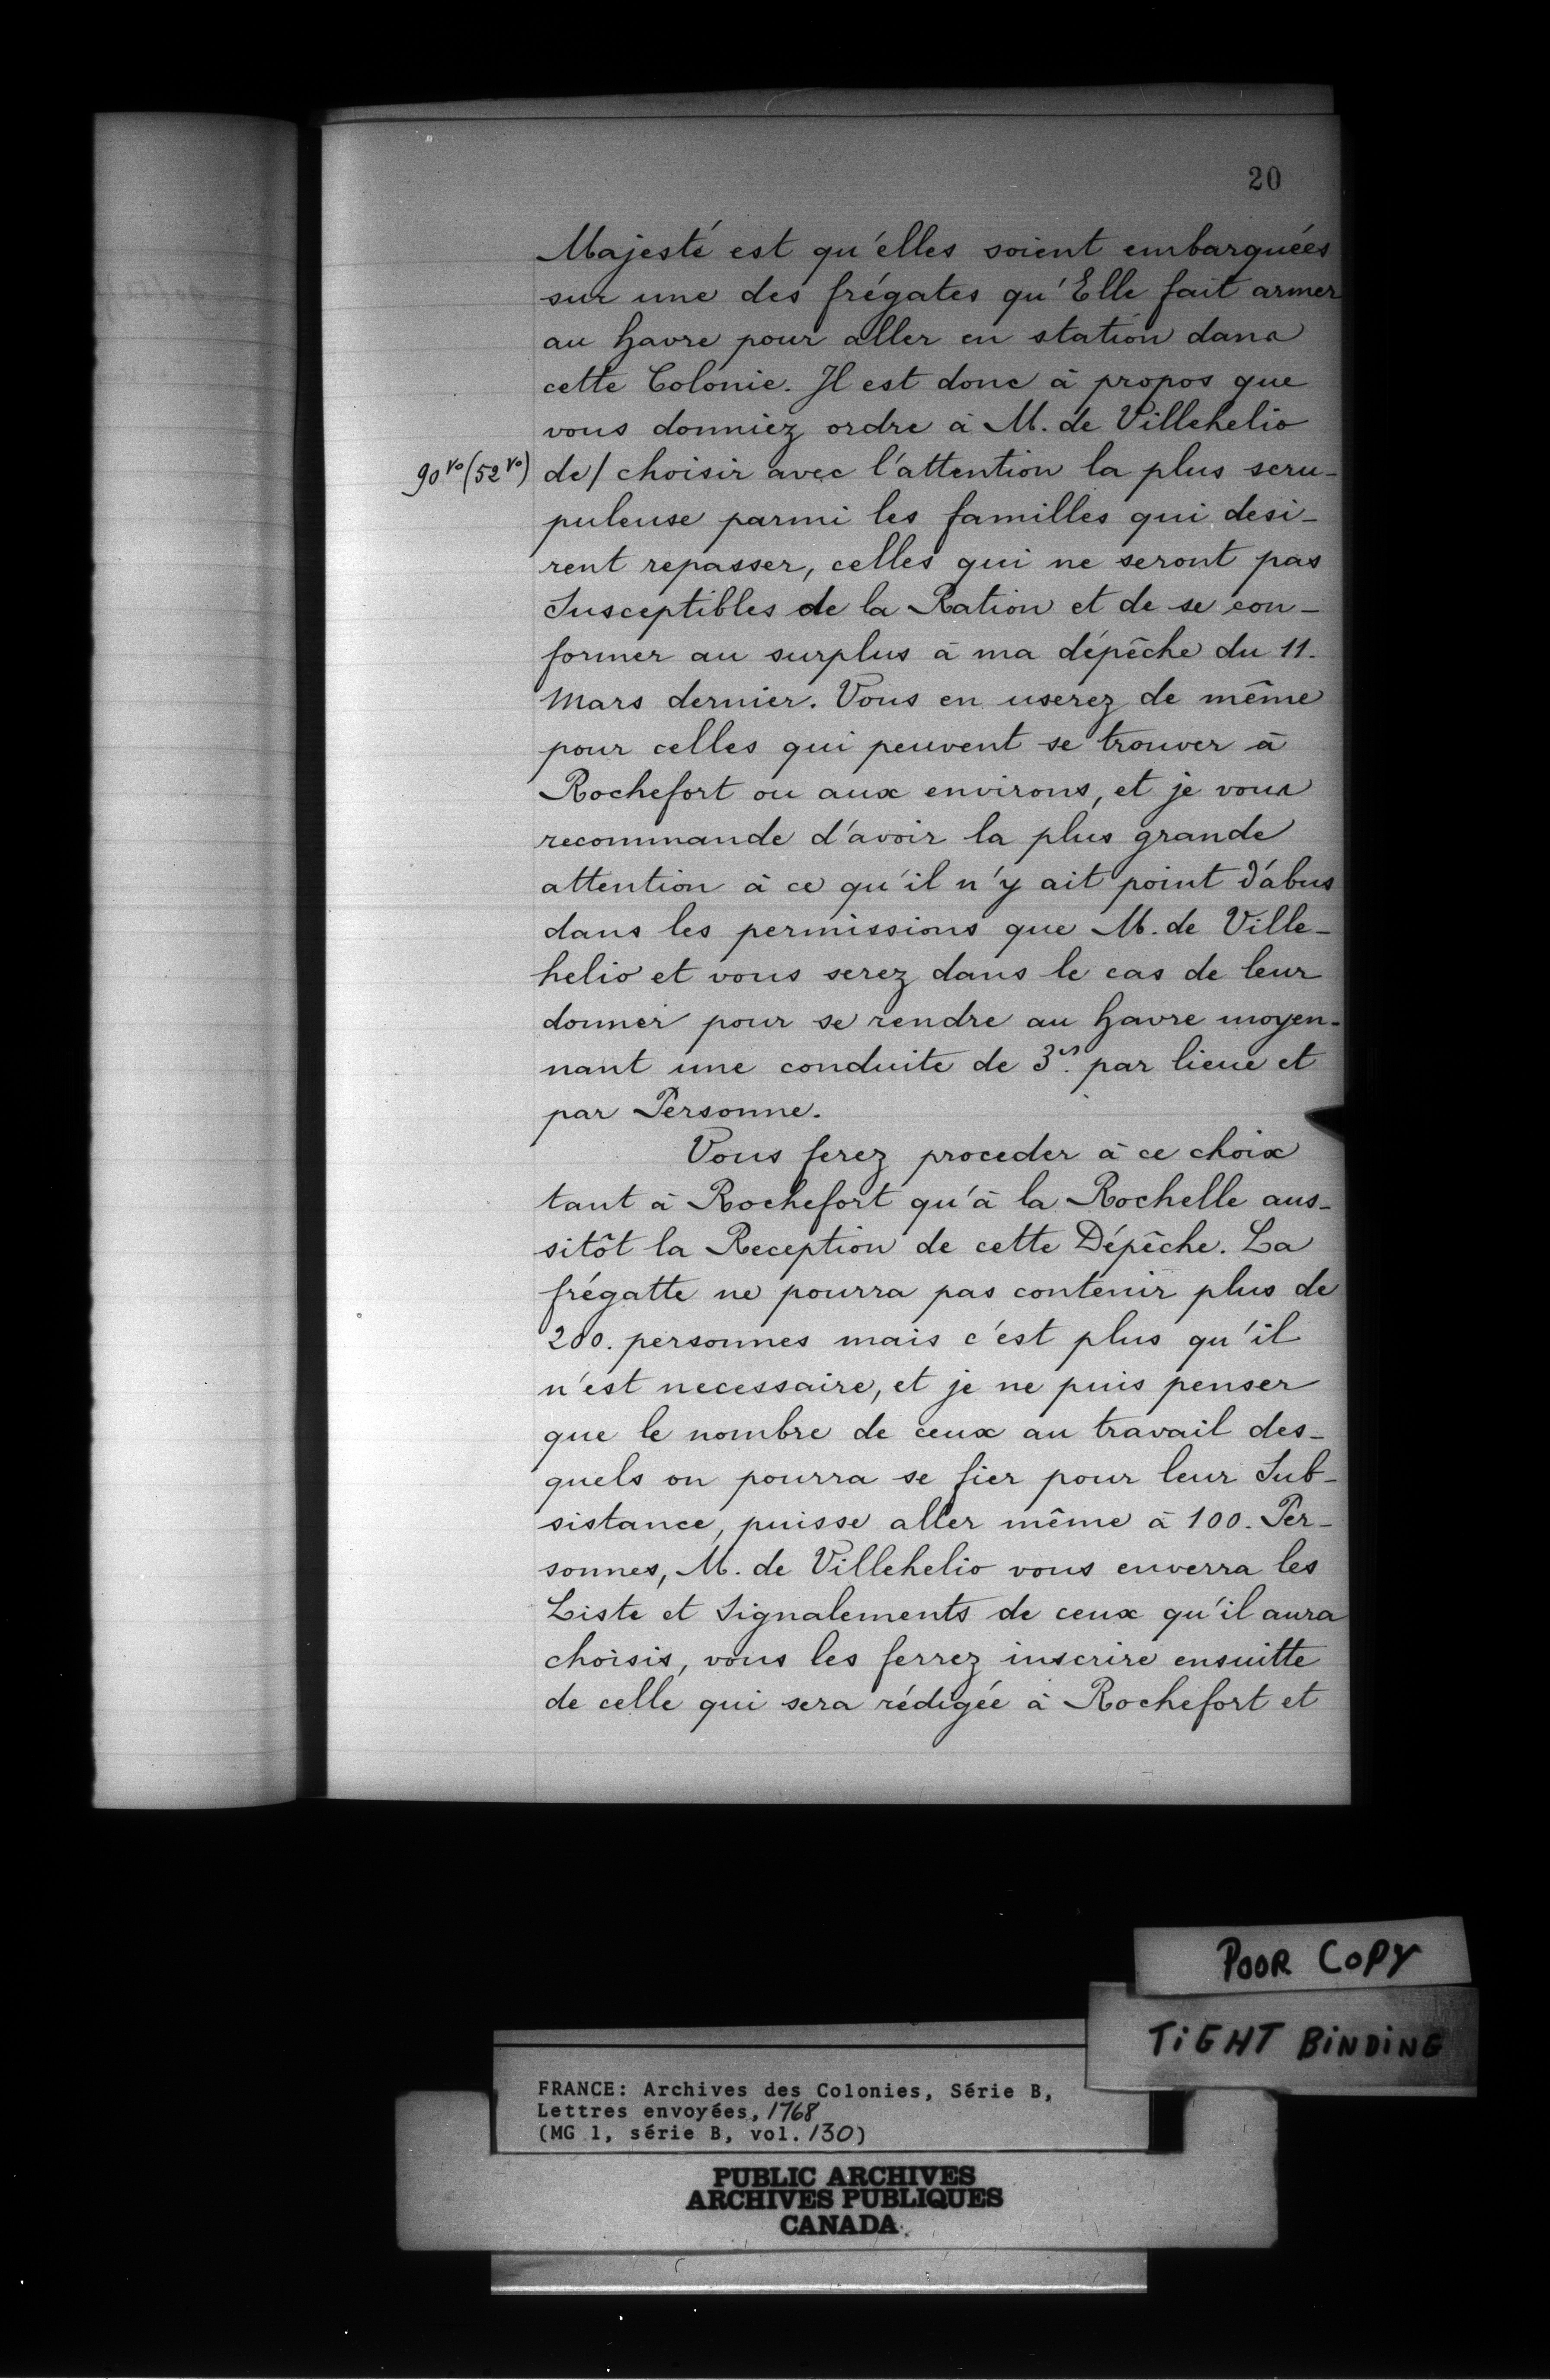 20
Majesté est qu'elles soient embarquées
sur une des frégates qu'Elle fait armer
au havre pour aller en station dans
cette Colonie. Il est donc à propos que
vous donniez ordre à M. de Villehelio
90 vo (52 vo) de/ choisir avec l'attention la plus scru-
puleuse parmi les familles qui desi-
rent repasser, celles qui ne seront pas
Susceptibles de la Ration et de se con-
former au surplus à ma dépêche du 11.
Mars dernier. Vous en userez de même
pour celles qui peuvent se trouver à
Rochefort ou aux environs, et je vous
recommande d'avoir la plus grande
attention à ce qu'il n'y ait point d'abus
dans les permissions que M. de Ville-
helio et vous serez dans le cas de leur
donner pour se rendre au havre moyen-
nant une conduite de 3 s. par lieue et
par Personne.
Vous ferez proceder à ce choix
tant à Rochefort qu'à la Rochelle aus-
sitôt la Reception de cette Dépêche. La
frégatte ne pourra pas contenir plus de
200. personnes mais c'est plus qu'il
n'est necessaire, et je ne puis penser
que le nombre de ceux au travail des-
quels on pourra se fier pour leur Sub-
sistance, puisse aller même à 100. Per-
sonnes, M. de Villehelio vous enverra les
Liste et Signalements de ceux qu'il aura
choisis, vous les ferrez inscrire ensuitte
de celle qui sera rédigée à Rochefort et
POOR COPY
TIGHT BINDING
FRANCE: Archives des Colonies, Série B,
Lettres envoyées, 1768
(MG 1, série B, vol. 130)
PUBLIC ARCHIVES
ARCHIVES PUBLIQUES
CANADA